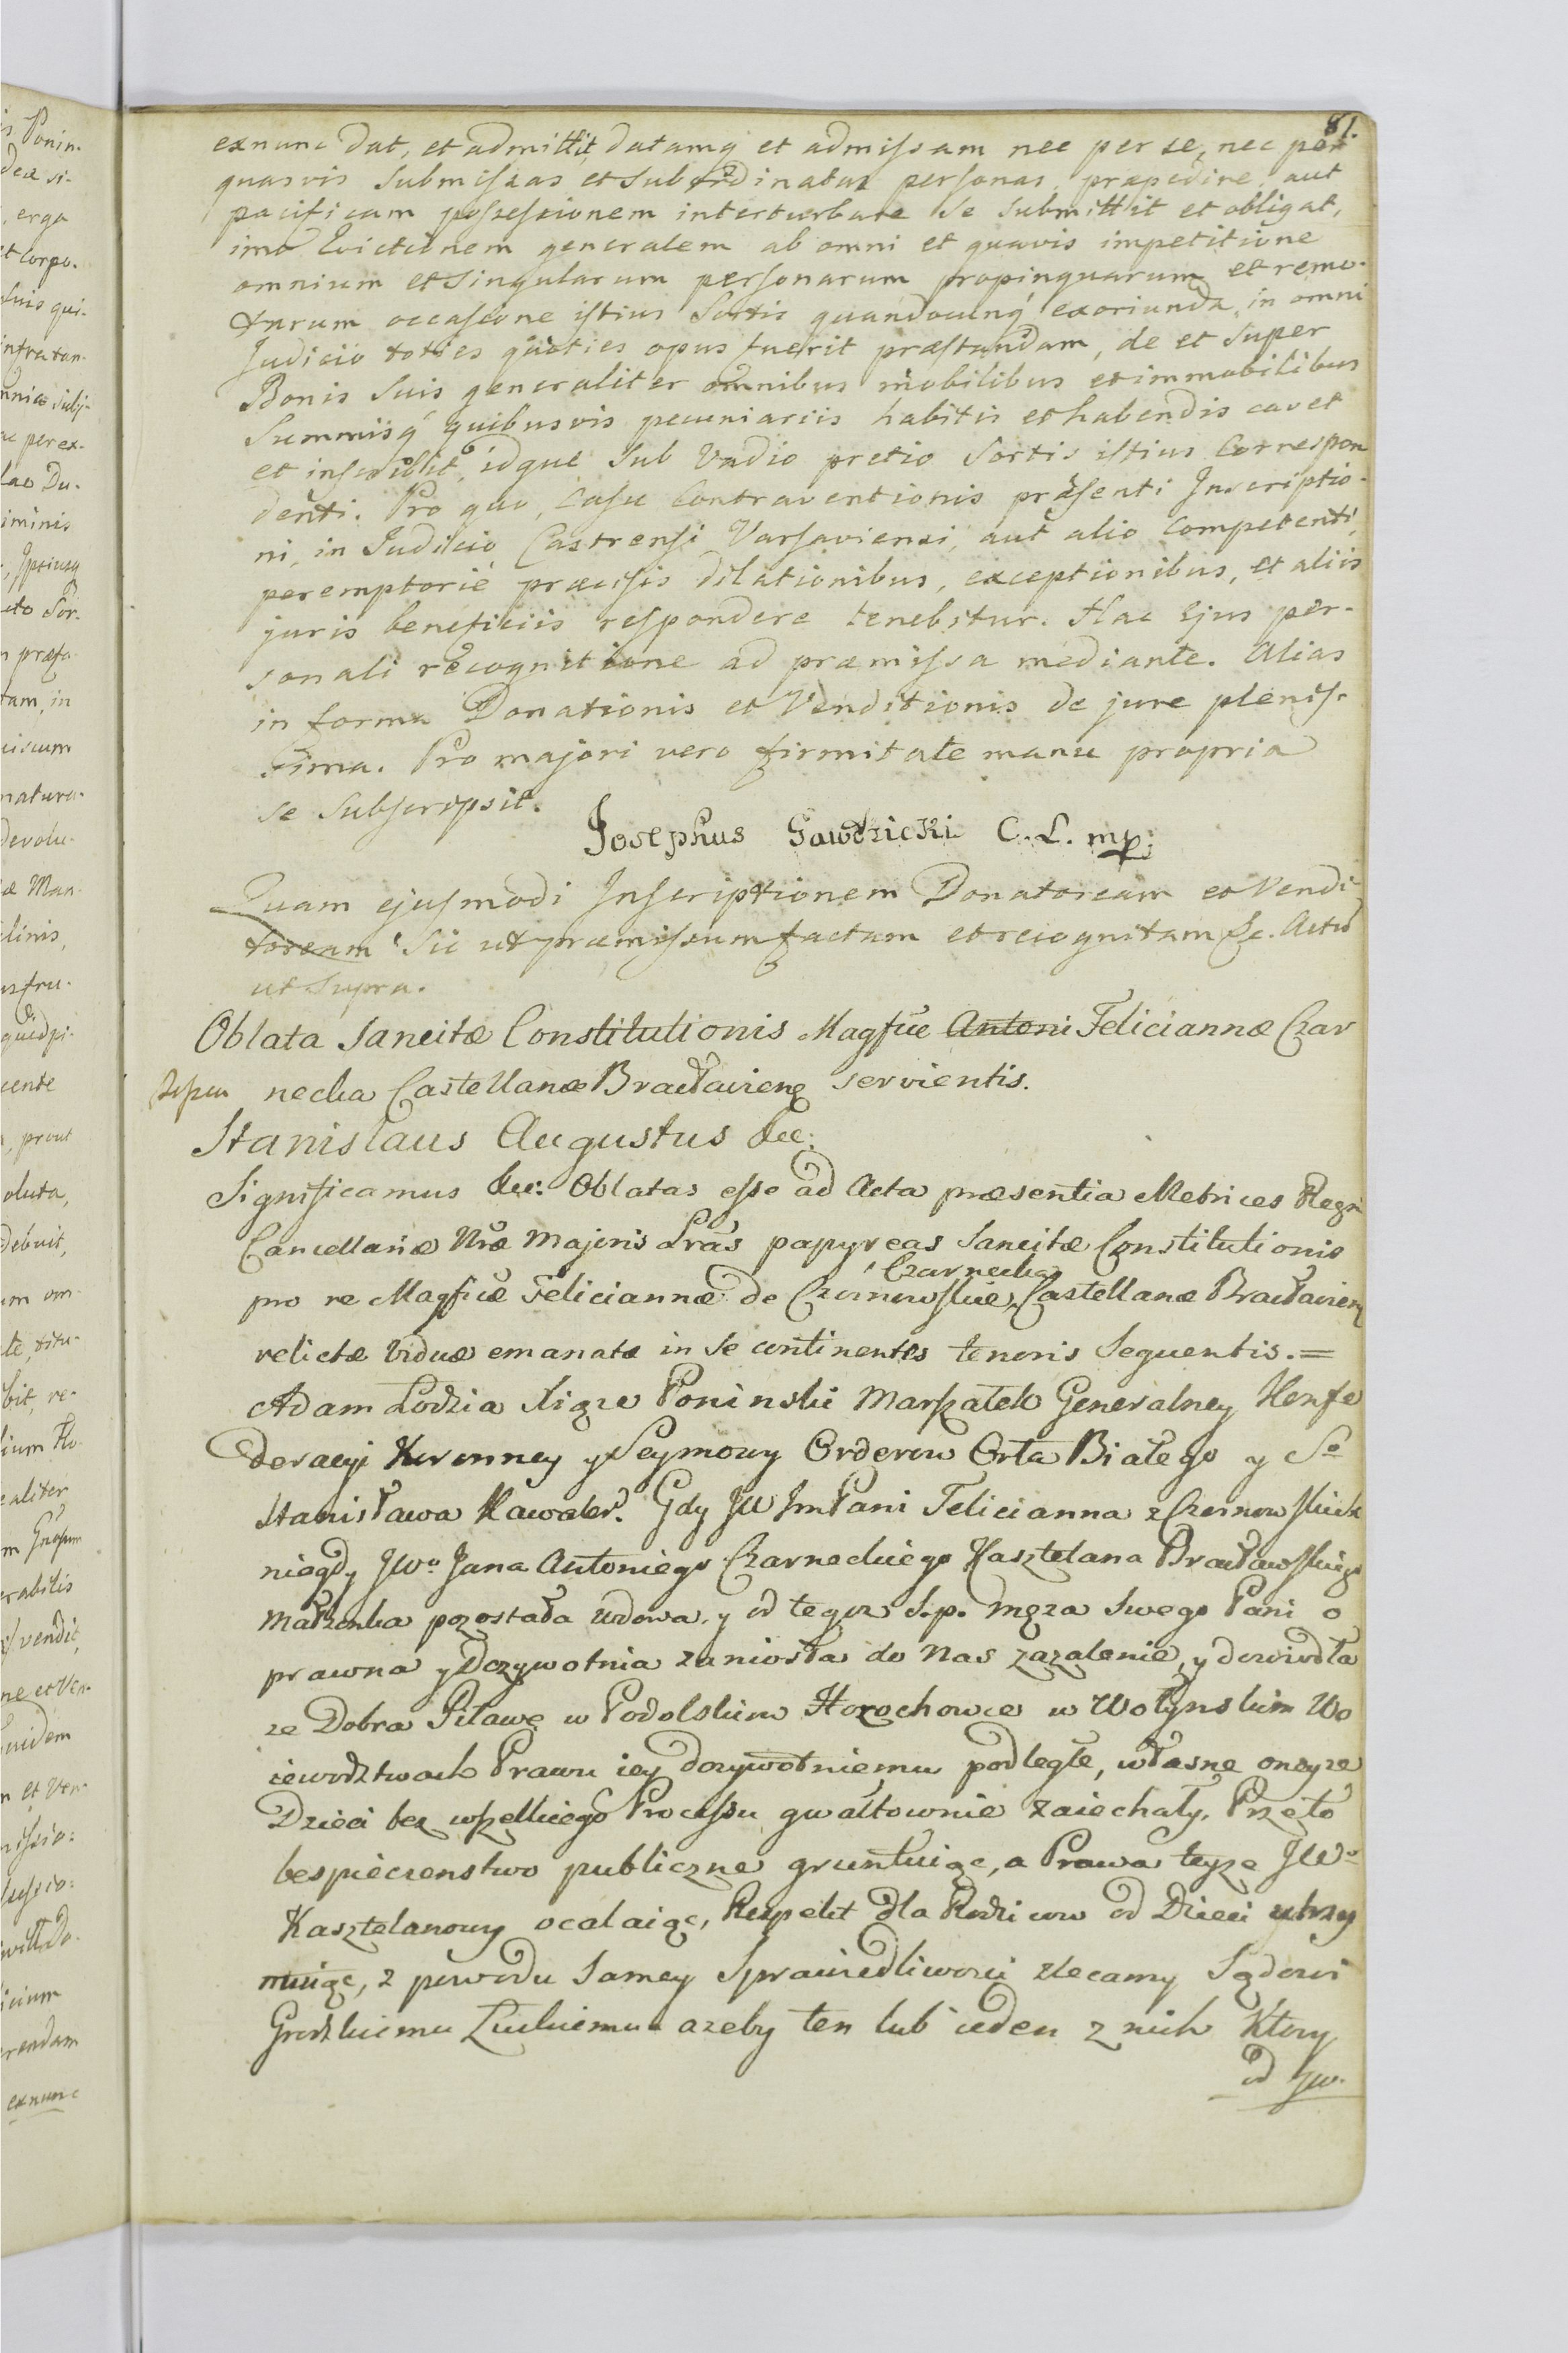 81.
exnunc dat, et admittit, datamq et admissam nec per se, nec per
quasvis submissas et subordinatas personas præpedire, aut
pacificam possessionem interturbare se submittit et obligat,
imo Evictionem generalem ab omni et quavis impetitione
omnium et singularum personarum propinquarum et remo-
tarum occasione istius Sortis quandocunq exoriunda, in omni
Judicio toties quoties opus fuerit præstandam, de et super
Bonis suis generaliter omnibus mobilibus et immobilibus
Summisq quibusvis pecuniariis habitis et habendis cavet
et inscribit, idque sub Vadio pretio Sortis istius Correspon
denti. Pro quo, Casu Contraventionis præsenti Inscriptio-
ni, in Judicio Castrensi Varsaviensi, aut alio Competenti,
peremptorie præcisis dilationibus, exceptionibus, et aliis
juris beneficiis respondere tenebitur. Hac Ejus per-
sonali recognitione ad præmissa mediante. Alias
in forma Donationis et Venditionis de jure plenis-
sima. Pro majori vero firmitate manu propria
se subscripsit.
Josephus Gawdzicki C. L. mp:
Quam ejusmodi Inscriptionem Donatoream et Vendi-
toream sic ut præmissum factam et recognitam &c. Actu
ut supra.
Oblata Sancitæ Constitutionis Magfcæ Antoni Feliciannæ Czar
necka Castellanæ Bracłaviens servientis.
Stanislaus Augustus &c:
Significamus &c: Oblatas esse ad Acta præsentia Metrices Regni
Cancellariæ Nræ Majoris Lras papyreas Sancitæ Constitutionis
pro re Magficæ Feliciannæ de Czernowskie, Czarnecka Castellanæ Bracłaviens
relictæ Viduæ emanatæ in se continentes tenoris sequentis. =
Adam Lodzia Xiąze Poninski Marszałek Generalney Konfe
deracyi Koronney y Seymowy Orderow Orła Białego y So
Stanisława Kawaler. Gdy JW ImPani Felicianna z Czernowskich
niegdy JWo Jana Antoniego Czarneckiego Kasztelana Bracławskiego
Małzonka pozostała Wdowa, y od tegoz S.p. Męza Swego Pani o
prawna y Dozywotnia zaniosła do Nas zazalenie, y dowiodła
ze Dobra Pilawę w Podolskim Horochowce w Wołynskim Wo
iewodztwach Prawu iey dozywotniemu podległe, własne oneyze
Dzieci bez wszelkiego Processu gwałtownie zaiechały. Przeto
bespieczenstwo publiczne gruntuiąc, a Prawa teyze JWo
Kasztelanowy ocalaiąc, Respekt dla Rodzicow od Dzieci utrzy
muiąc, z powodu samey Sprawiedliwosci zlecamy Sądowi
Grodzkiemu Łuckiemu azeby ten lub ieden z nich Ktory
od JW.